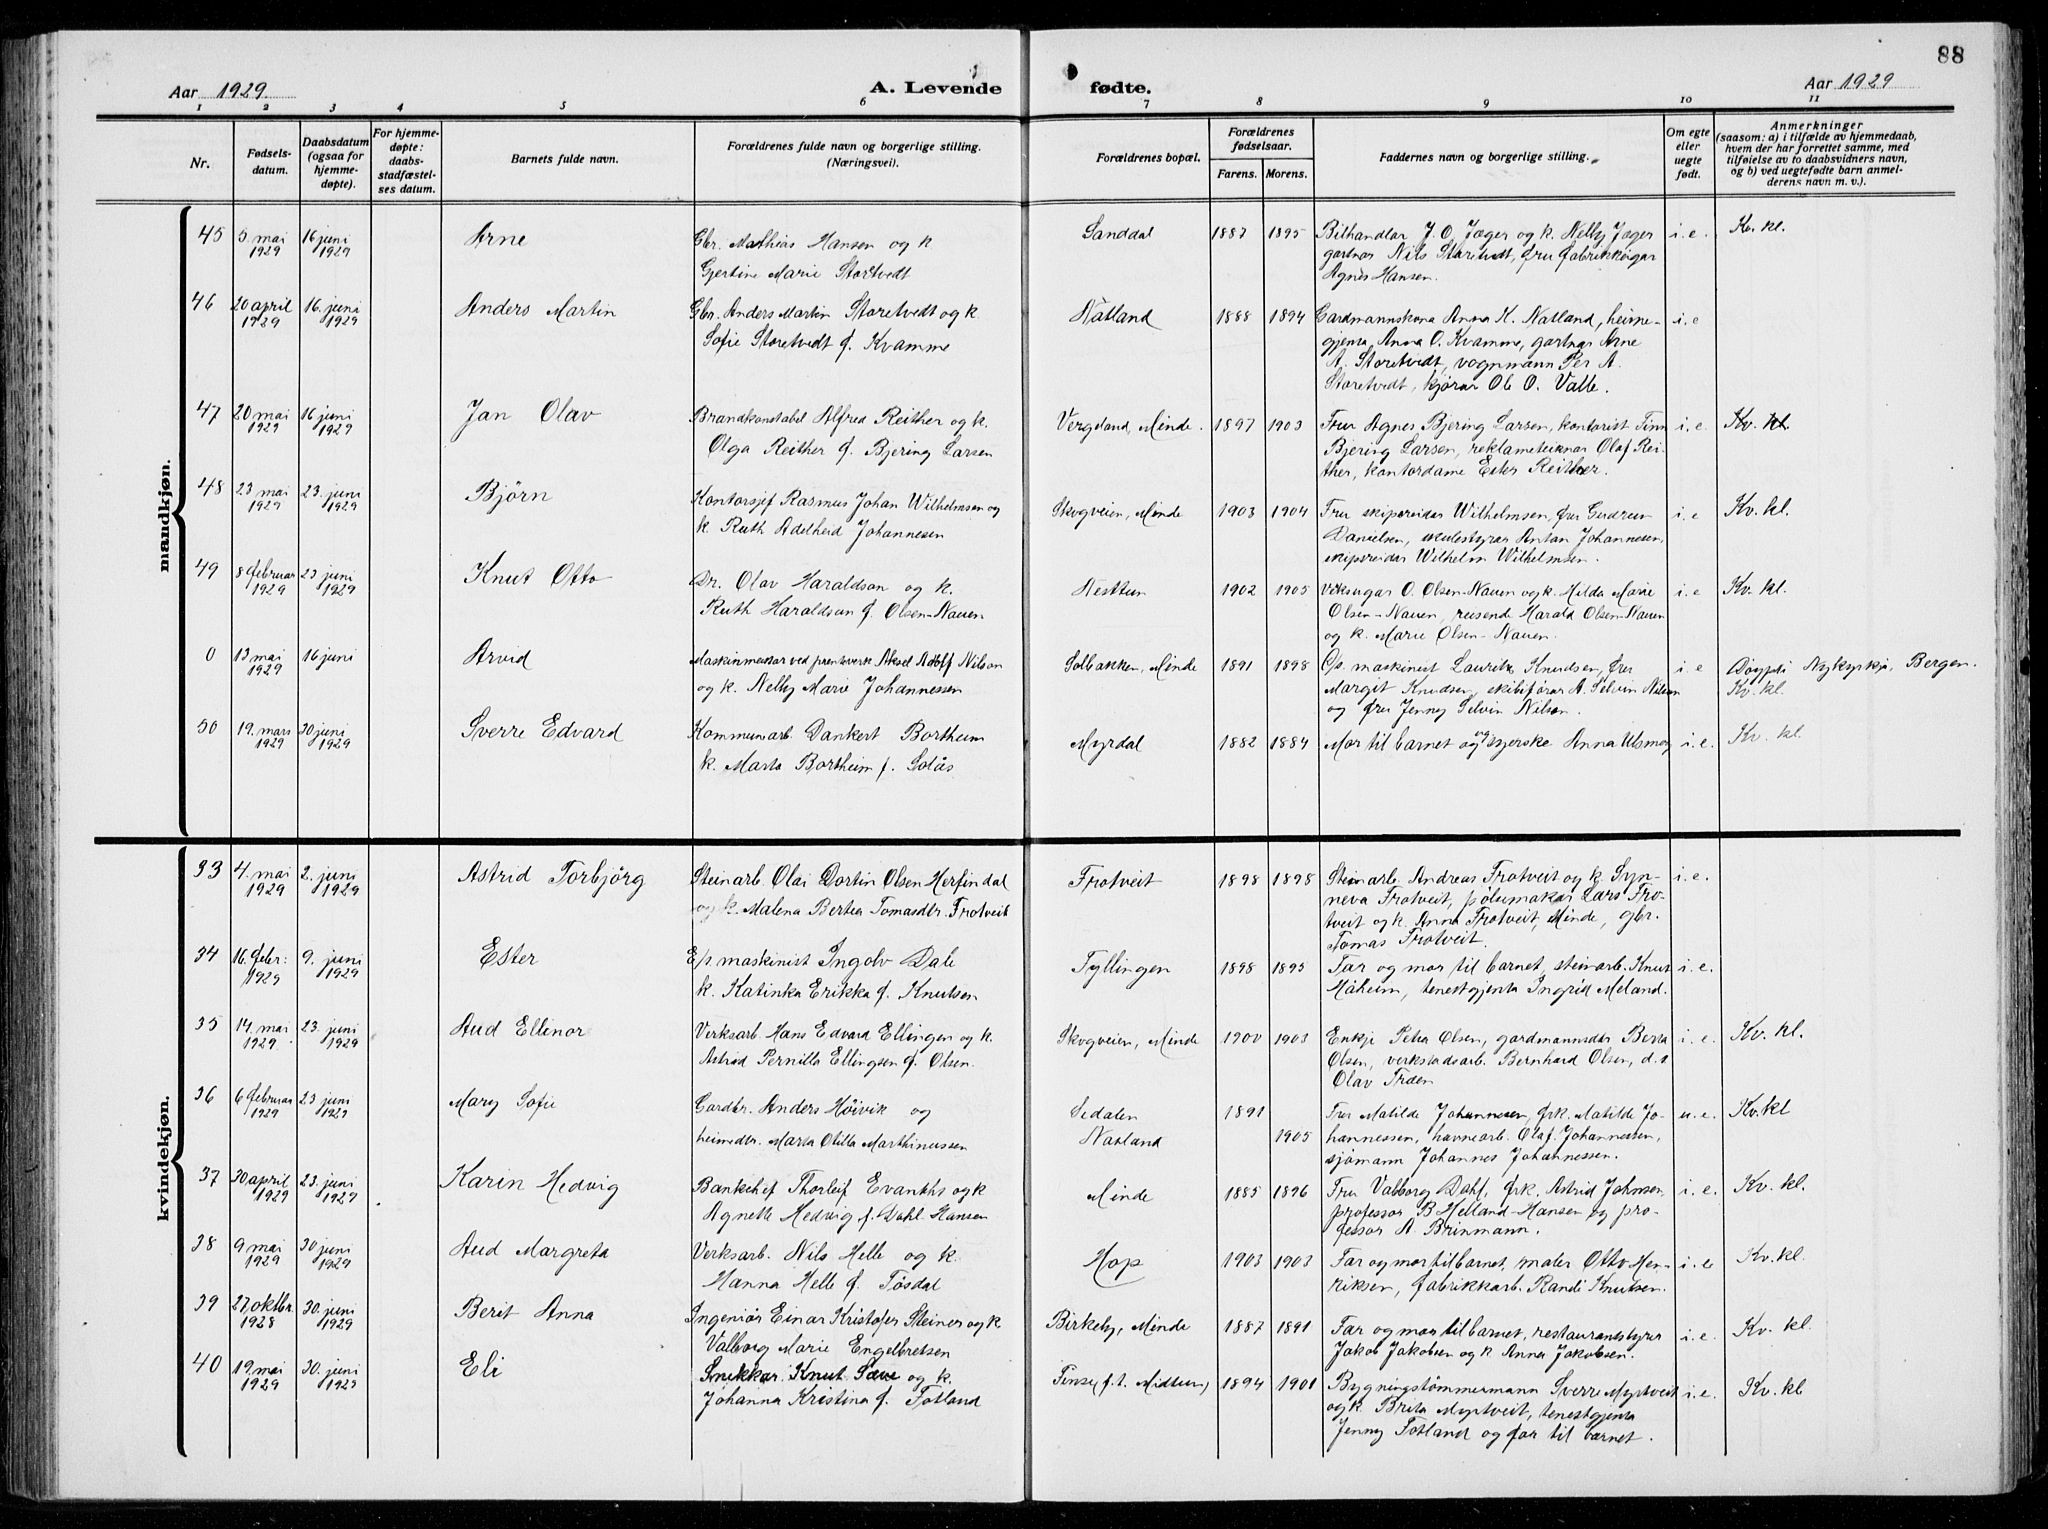 88
Aar 1929. A. Levende fødte. Aar 1929
1 2 3 4 5 6 7 8 9 10 11
Nr. | Fødselsdatum. | Daabsdatum (ogsaa for hjemmedøpte). | For hjemmedøpte: daabsstadfæstelses datum. | Barnets fulde navn. | Forældrenes fulde navn og borgerlige stilling. (Næringsveil). | Forældrenes bopæl. | Forældrenes fødselsaar. Farens. Morens. | Faddernes navn og borgerlige stilling. | Om egte eller uegte født. | Anmerkninger (saasom: a) i tilfælde av hjemmedaab, hvem der har forrettet samme, med tilføielse av to daabsvidners navn, og b) ved uegtefødte barn anmelderens navn m. v.).
mandkjøn.
45 5. mai 1929 16 juni 1929 Arne Gbr. Mathias Hansen og k Sanddal 1887 1895 Bilhandlar J. O. Jæger og k. Nelly Jæger i. e. Kv. kl.
Gjertine Marie Storetvedt gartnar Nils Storetvedt, fru
Agnes Hansen.
46 20 april 1929 16. juni 1929 Anders Martin Gbr. Anders Martin Storetvedt og k. Natland 1888 1894 Gardmannskona Anna H. Natland, heime- i. e
Sofie Storetvedt f. Kvamme gjenta Anna O. Kvamme, gartnar Arne
A. Storetvedt, vognmann Per A.
Storetvedt, kjørar Ole O. Valle.
47 20 mai 1929 16 juni 1929 Jan Olav Brandkonstabel Alfred Reither og k. Vergeland, Minde. 1897 1903 Frue Agnes Bjering Larsen, kontorist Finn i. e. Kv. kl.
Olga Reither f. Bjering Larsen Bjering Larsen, reklameteiknar Olaf Rei-
ther, kontordame Ester Reither.
48 23 mai 1929 23. juni 1929 Bjørn Kontorsjef Rasmus Johan Wilhelmsen og Skogveien, Minde 1903 1904 Fru skipsreidar Wilhelmsen, fru Gudrun i. e Kv. kl.
k. Ruth Adelheid Johannesen Danielsen, skulestyrar Anton Johannesen,
skipsreidar Wilhelm Wilhelmsen.
49 8 februar 1929 23 juni 1929 Knut Otto Dr. Olav Haraldson og k. Nesttun 1902 1905 O. Olsen-Nauen og k. Hilda Marie i. e Kv. kl.
Ruth Haraldson f. Olsen-Nauen Olsen-Nauen, reisende Harald Olsen-Nauen
og k. Marie Olsen-Nauen.
0 13 mai 1929 16 juni Arvid Maskinmeistar ved Aksel Adolf Nilson Solbakken, Minde 1891 1898 E/s. maskinist Laurits Knudsen, fru i. e Døypt i Nykyrkja, Bergen.
og k. Nelly Marie Johannessen Margit Knudsen, skibsførar A. Selvin Nilsen Kv. kl.
og fru Jenny Selvin Nilsen.
50 19. mars 1929 30 juni 1929 Sverre Edvard Kommunarb. Dankert Bortheim Myrdal 1882 1884 Mor til barnet og Anna i. e. Kv. kl.
k. Marta Bortheim f. Solås
kvindekjøn.
33 4. mai 1929 2. juni 1929 Astrid Torbjörg Steinarb. Olai Dortin Olsen Herfindal Frotveit 1898 1898 Steinarb. Andreas Frotveit og k. Syn- i. e.
og k. Malena Bertea Tomasdtr. Frotveit neva Frotveit, pølsemakar Lars Fro-
tveit og k. Anna Frotveit, Minde, gbr.
Tomas Frotveit.
34 16. febr: 1929 9. juni 1929 Ester E/s maskinist Ingolv Dale Tyllingen 1898 1895 Far og mor til barnet, steinarb. Knut i. e.
k. Katinka Erikka f. Knutsen Måheim, tenestgjenta Ingrid Meland.
35 14. mai 1929 23. juni 1929 Aud Ellinor Verksarb. Hans Edvard Ellingsen og k. Skogveien, Minde 1900 1903 Enkje Petra Olsen, gardmannsdtr Berta i. e. Kv. kl.
Astrid Pernilla Ellingsen f. Olsen. Olsen, verkstadsarb. Bernhard Olsen, d. s
Olav Troen
36 6 februar 1929 23 juni 1929 Mary Sofie Gardbr. Anders Høivik og Sedalen 1891 Fru Matilde Johannesen, frk. Matilde Jo- u. e. Kv. kl
heimedtr. Marta Otilie Marthinussen Natland 1905 hannessen, havnearb. Olaf Johannessen,
sjömann Johannes Johannessen.
37 30 april 1929 23. juni 1929 Karin Hedvig Bankchef Thorleif Evanths og k Minde 1885 1896 Fru Valborg Dahl, frk. Astrid Johnsen, i. e. Kv. kl.
Agnette Hedvig f. Dahl Hansen professor B. Helland-Hansen og pro-
fessor A. Brinmann.
38 9 mai 1929 30 juni 1929 Aud Margreta Verksarb. Nils Helle og k. Hop 1903 1903 Far og mor til barnet, maler Otto Hen- i. e Kv. kl.
Hanna Helle f. Tösdal riksen, fabrikkarb. Randi Knutsen.
39 27. oktbr. 1928 30. juni 1929 Berit Anna Ingeniör Einar Kristofer Steiner og k. Birkeby, Minde 1887 1891 Far og mor til barnet, restaurantstyrer i. e. Kv. kl.
Valborg Marie Engelbretsen Jakob Jakobsen og k. Anna Jakobsen.
40 19. mai 1929 30. juni 1929 Eli Snikkar Knut Sæve og k. Finse (f. t. Midttun) 1894 1901 Bygningstömmermann Sverre Myrtveit i. e. Kv. kl
Johanna Kristina f. Totland og k. Brita Myrtveit, tenestgjenta
Jenny Totland og far til barnet.